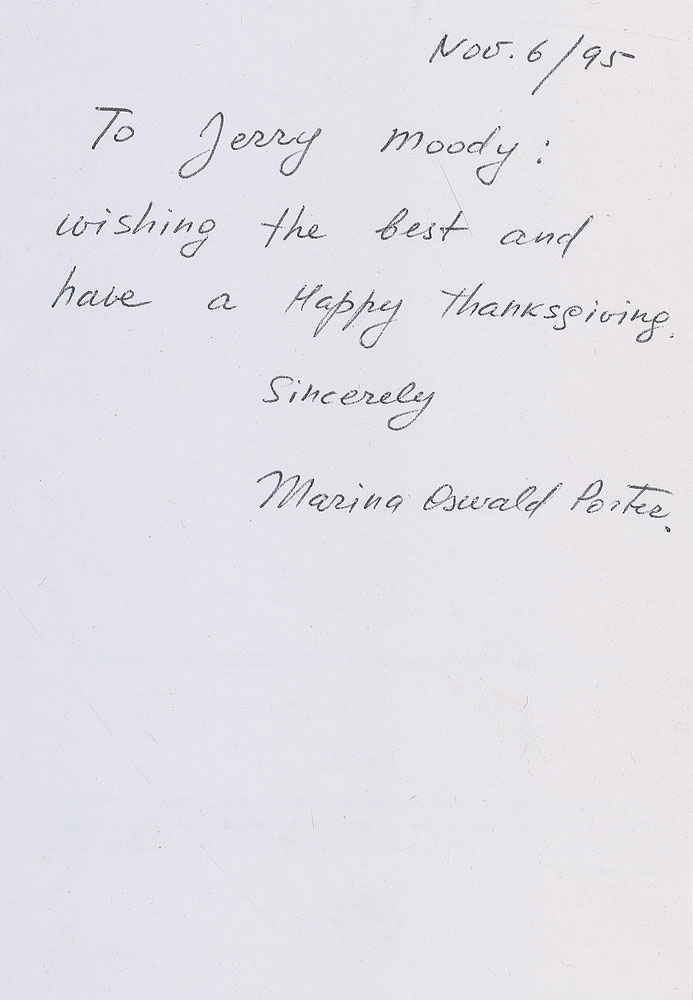 Nov. 6/95
To Jerry Moody:
wishing the best and
have a Happy Thanksgiving.
Sincerely
Marina Oswald Porter.